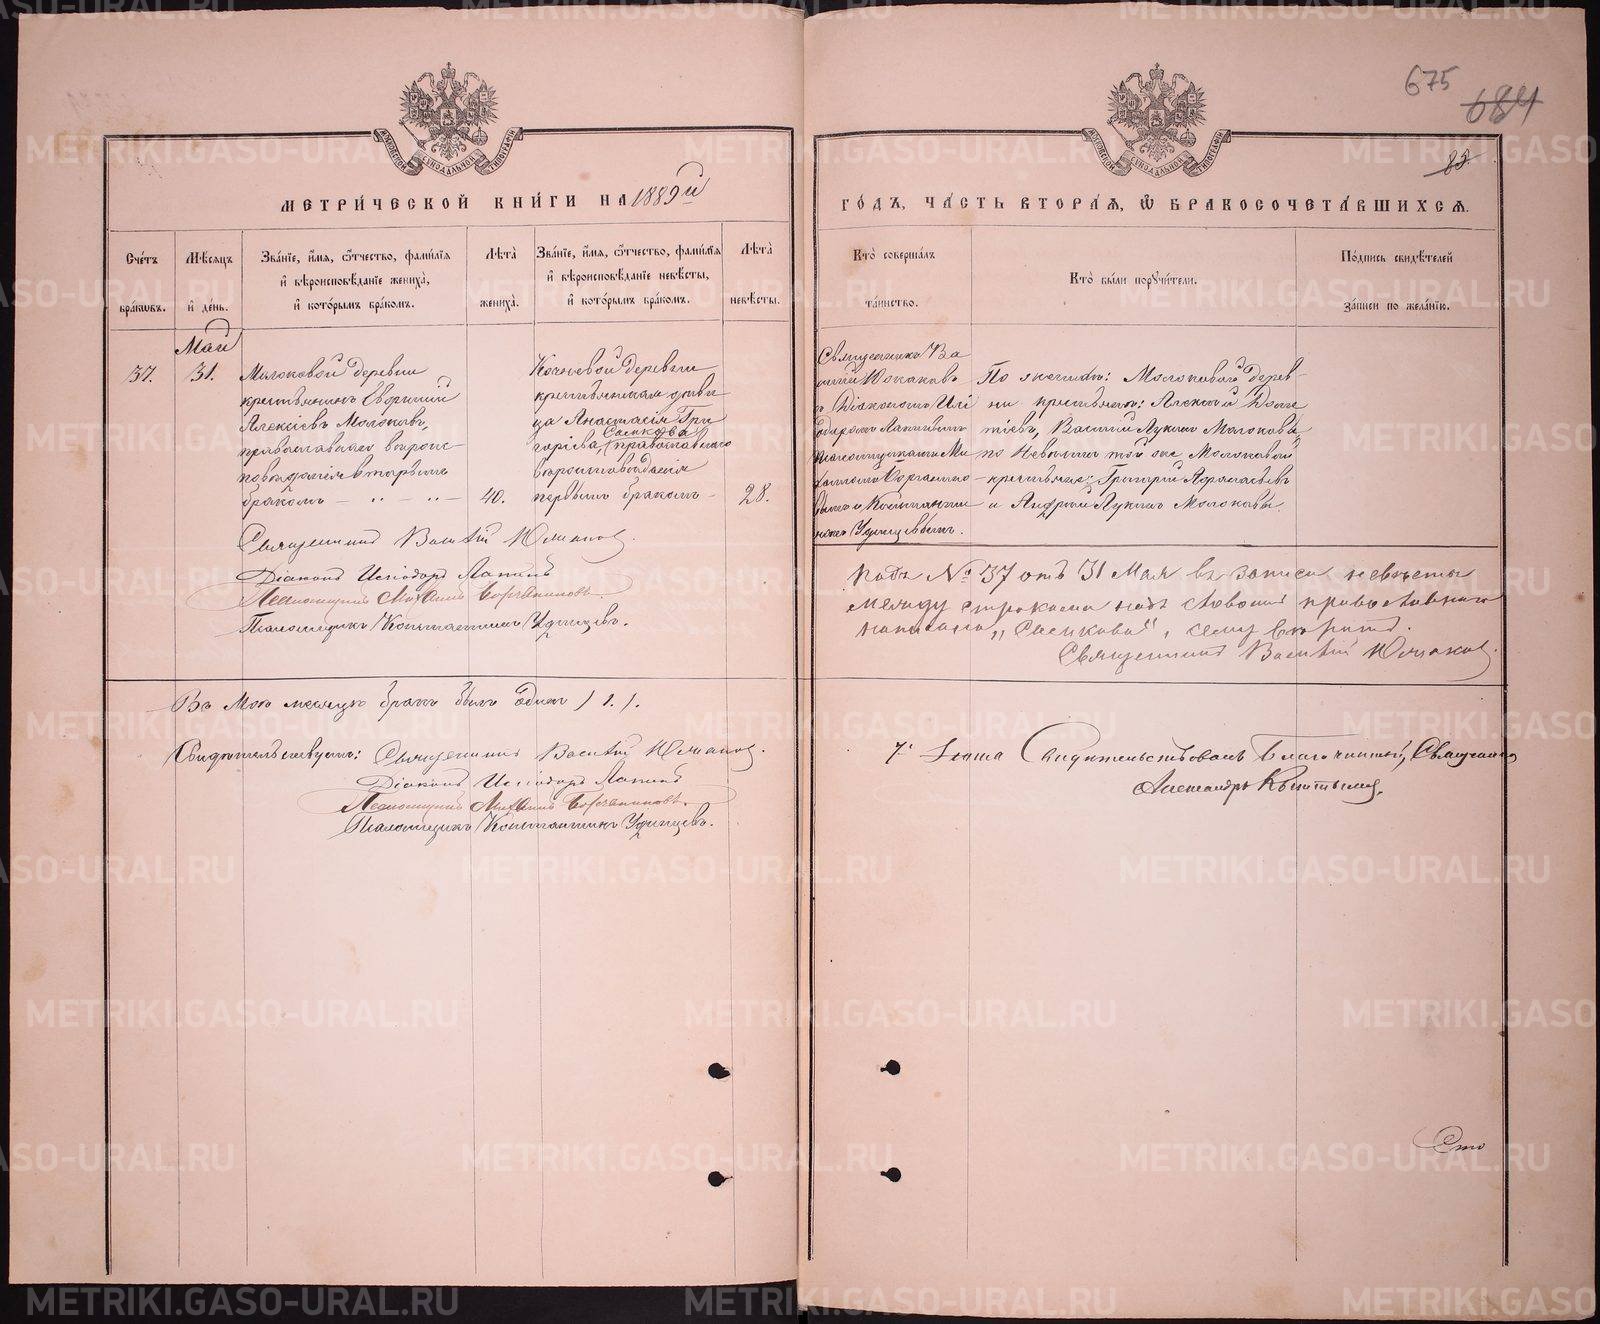 675
684
82
МОСКОВСКОЙ СѴНОДАЛЬНОЙ ТИПОГРАФІИ
МОСКОВСКОЙ СѴНОДАЛЬНОЙ ТИПОГРАФІИ
МЕТРИ́ЧЕСКОЙ КНИ́ГИ НА 1889й
ГО́ДЪ, ЧА́СТЬ ВТОРА́Ѧ, Ѡ БРАКОСОЧЕТА́ВШИХСѦ.
Сче́тъ бра́кѡвъ.
Мѣ́сѧцъ и҆ де́нь.
Зва́нїе, и҆́мѧ, ѻ҆́тчество, фами́лїѧ
и҆ вѣроисповѣ́данїе жениха̀,
и҆ кото́рымъ бра́комъ.
Лѣта̀ жениха̀.
Зва́нїе, и҆́мѧ, ѻ҆́тчество, фами́лїѧ
и҆ вѣроисповѣ́данїе невѣ́сты,
и҆ кото́рымъ бра́комъ.
Лѣта̀ невѣ́сты.
Кто̀ соверша́лъ та́инство.
Кто̀ бы́ли порꙋчи́тели.
По́дпись свидѣ́телей
за́писи по жела́нїю.
Май
37.
31.
Молоковой деревни
крестьянинъ
Алексіевъ Молоковъ,
православнаго вѣроис-
повѣданія вторымъ
бракомъ
40.
деревни
крестьянская дѣви
ца Анастасія Гри
горіева, Сенкова православнаго
вѣроисповѣданія
первымъ бракомъ
28.
Священникъ Ва
силій Юмановъ
съ Діакономъ Иси
доромъ Лапинымъ
Псаломщиками Ми
хаиломъ
и Константи
номъ Удинцевымъ.
По женихѣ: Молоковой дерев-
ни крестьяне: Алексій
Василій Лукинъ Молоковы,
по невѣстѣ той же Молоковой
крестьяне: Григорій
и Андрей Лукинъ Молоковы.
Священникъ Василій Юмановъ.
Діаконъ Исидоръ Лапинъ
Псаломщикъ Михаилъ
Псаломщикъ Константинъ Удинцевъ.
Подъ № 37 отъ 31 Мая въ записи невѣсты
между строками надъ словомъ православнаго
написано „Сенкова“, сему вѣрить.
Священникъ Василій Юмановъ.
Въ Маѣ мѣсяцѣ бракъ былъ одинъ /1./.
Свидѣтельствуемъ: Священникъ Василій Юмановъ.
Діаконъ Исидоръ Лапинъ
Псаломщикъ Михаилъ
Псаломщикъ Константинъ Удинцевъ.
7. Іюня Свидѣтельствовалъ Благочинный, Священникъ
Александръ
Сто
METRIKI.GASO-URAL.RU